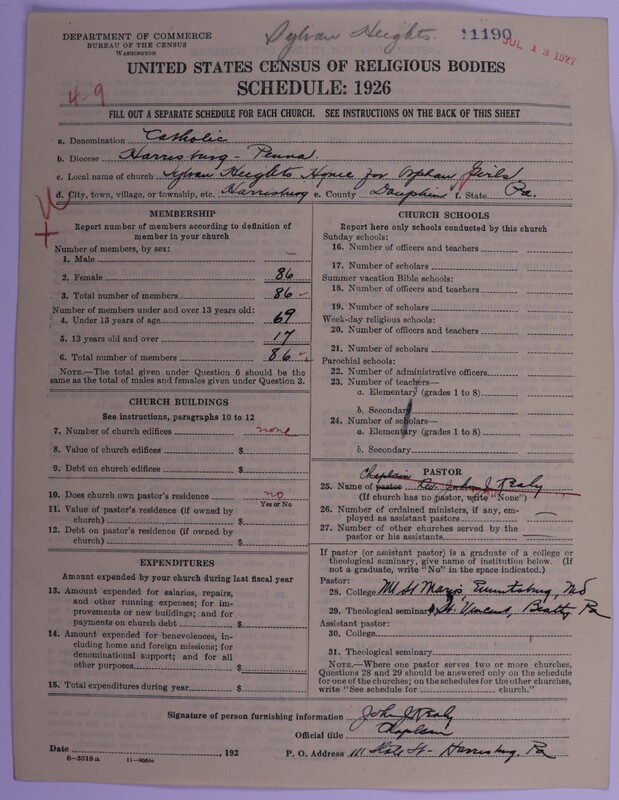 DEPARTMENT OF COMMERCE
BUREAU OF THE CENSUS
WASHINGTON
Sylvan Heights.
11190
JUL 13 1927
UNITED STATES CENSUS OF RELIGIOUS BODIES
SCHEDULE: 1926
4-9
FILL OUT A SEPARATE SCHEDULE FOR EACH CHURCH. SEE INSTRUCTIONS ON THE BACK OF THIS SHEET
a. Denomination Catholic
b. Diocese Harrisburg - Penna.
c. Local name of church Sylvan Heights Home for Orphan Girls
d. City, town, village, or township, etc. Harrisburg e. County Dauphin f. State Pa.
MEMBERSHIP
Report number of members according to definition of
member in your church
Number of members, by sex:
1. Male —
2. Female 86
3. Total number of members 86
Number of members under and over 13 years old:
4. Under 13 years of age 69
5. 13 years old and over 17
6. Total number of members 86
NOTE.—The total given under Question 6 should be
the same as the total of males and females given under Question 3.
CHURCH BUILDINGS
See instructions, paragraphs 10 to 12
7. Number of church edifices none
8. Value of church edifices $
9. Debt on church edifices $
10. Does church own pastor's residence no
Yes or No
11. Value of pastor's residence (if owned by
church) $
12. Debt on pastor's residence (if owned by
church) $
EXPENDITURES
Amount expended by your church during last fiscal year
13. Amount expended for salaries, repairs,
and other running expenses; for im-
provements or new buildings; and for
payments on church debt $
14. Amount expended for benevolences, in-
cluding home and foreign missions; for
denominational support; and for all
other purposes $
15. Total expenditures during year $
CHURCH SCHOOLS
Report here only schools conducted by this church
Sunday schools:
16. Number of officers and teachers
17. Number of scholars
Summer vacation Bible schools:
18. Number of officers and teachers
19. Number of scholars
Week-day religious schools:
20. Number of officers and teachers
21. Number of scholars
Parochial schools:
22. Number of administrative officers
23. Number of teachers—
a. Elementary (grades 1 to 8)
b. Secondary
24. Number of scholars—
a. Elementary (grades 1 to 8)
b. Secondary
PASTOR
Chaplain
25. Name of pastor Rev. John J. Kealy
(If church has no pastor, write "None")
26. Number of ordained ministers, if any, em-
ployed as assistant pastors —
27. Number of other churches served by the
pastor or his assistants —
If pastor (or assistant pastor) is a graduate of a college or
theological seminary, give name of institution below. (If
not a graduate, write "No" in the space indicated.)
Pastor:
28. College Mt St Marys, Emmitsburg, Md
29. Theological seminary St. Vincent, Beatty Pa
Assistant pastor:
30. College
31. Theological seminary
NOTE.—Where one pastor serves two or more churches,
Questions 28 and 29 should be answered only on the schedule
for one of the churches; on the schedules for the other churches,
write "See schedule for church."
Signature of person furnishing information John J Kealy
Official title Chaplain
Date , 192
P. O. Address 111 State St - Harrisburg, Pa
8-5518a 11-9054c